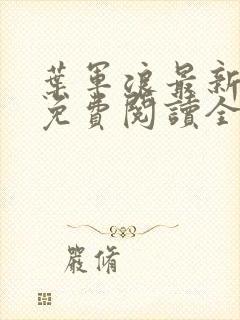 葉軍浪最新
免費閱讀全
嚴脩